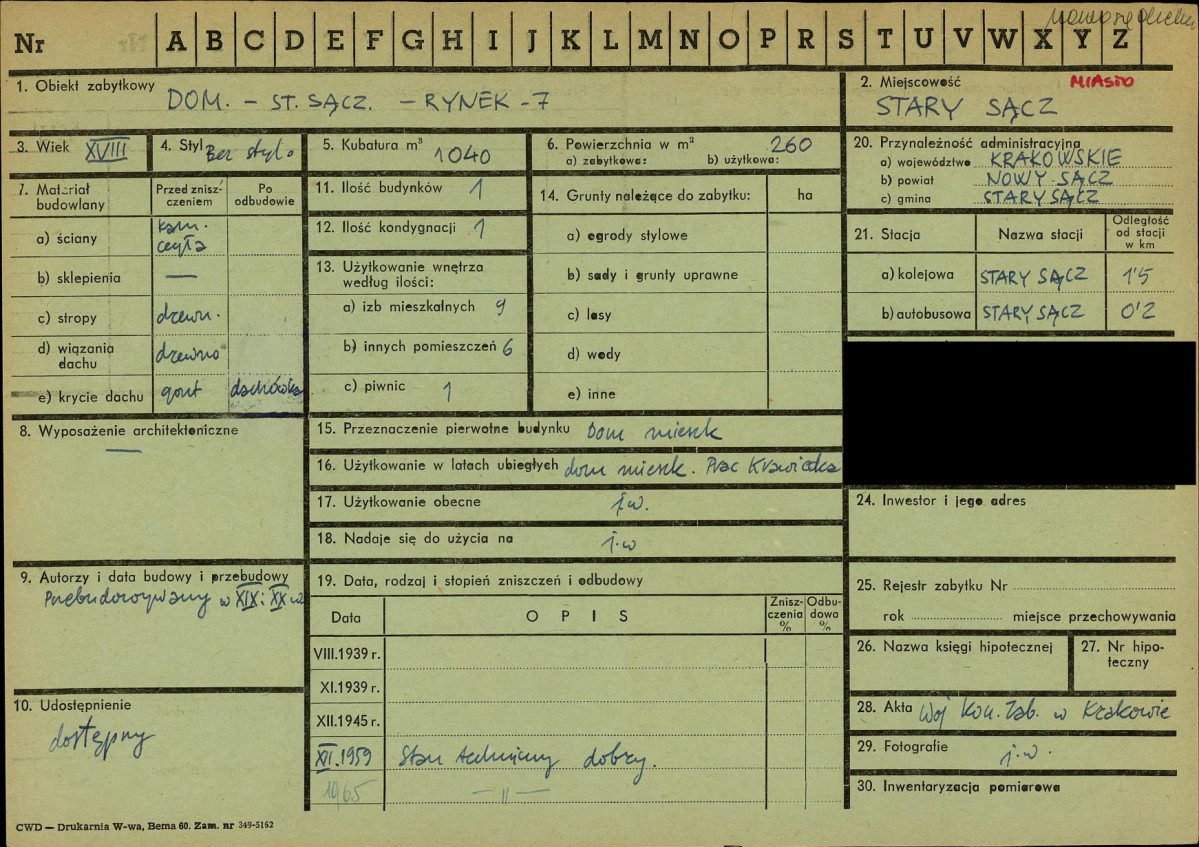 nowosądeckie
Nr A B C D E F G H I J K L M N O P R S T U V W X Y Z
1. Obiekt zabytkowy
DOM. – ST. SĄCZ. – RYNEK - 7
2. Miejscowość MIASTO
STARY SĄCZ
3. Wiek XVIII
4. Styl Bez stylo
5. Kubatura m³ 1040
6. Powierzchnia w m³ 260
a) zabytkowa: b) użytkowa:
7. Materiał budowlany
Przed zniszczeniem
Po odbudowie
a) ściany kam. cegła
b) sklepienia —
c) stropy drzewn.
d) wiązania dachu drzewno
e) krycie dachu gont dachówka
8. Wyposażenie architektoniczne
—
9. Autorzy i data budowy i przebudowy
Przebudowywany w XIX i XX w
10. Udostępnienie
dostępny
11. Ilość budynków 1
12. Ilość kondygnacji 1
13. Użytkowanie wnętrza
według ilości:
a) izb mieszkalnych 9
b) innych pomieszczeń 6
c) piwnic 1
14. Grunty należące do zabytku: ha
a) ogrody stylowe
b) sady i grunty uprawne
c) lasy
d) wody
e) inne
15. Przeznaczenie pierwotne budynku Dom mieszk
16. Użytkowanie w latach ubiegłych dom mieszk. Prac Krawiecka
17. Użytkowanie obecne j.w.
18. Nadaje się do użycia na j.w
19. Data, rodzaj i stopień zniszczeń i odbudowy
Data OPIS Zniszczenia % Odbudowa %
VIII.1939 r.
XI.1939 r.
XII.1945 r.
XI.1959 Stan techniczny dobry.
1965 — " —
20. Przynależność administracyjna
a) województwo KRAKOWSKIE
b) powiat NOWY-SĄCZ
c) gmina STARY SĄCZ
21. Stacja Nazwa stacji Odległość od stacji w km
a) kolejowa STARY SĄCZ 1'5
b) autobusowa STARY SĄCZ 0'2
24. Inwestor i jego adres
25. Rejestr zabytku Nr
rok miejsce przechowywania
26. Nazwa księgi hipotecznej
27. Nr hipoteczny
28. Akta Woj Kon. Zab. w Krakowie
29. Fotografie j.w.
30. Inwentaryzacja pomiarowa
CWD — Drukarnia W-wa, Bema 60. Zam. nr 349-5162